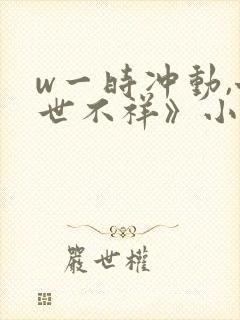 w一時冲動,
世不祥》小
嚴世權